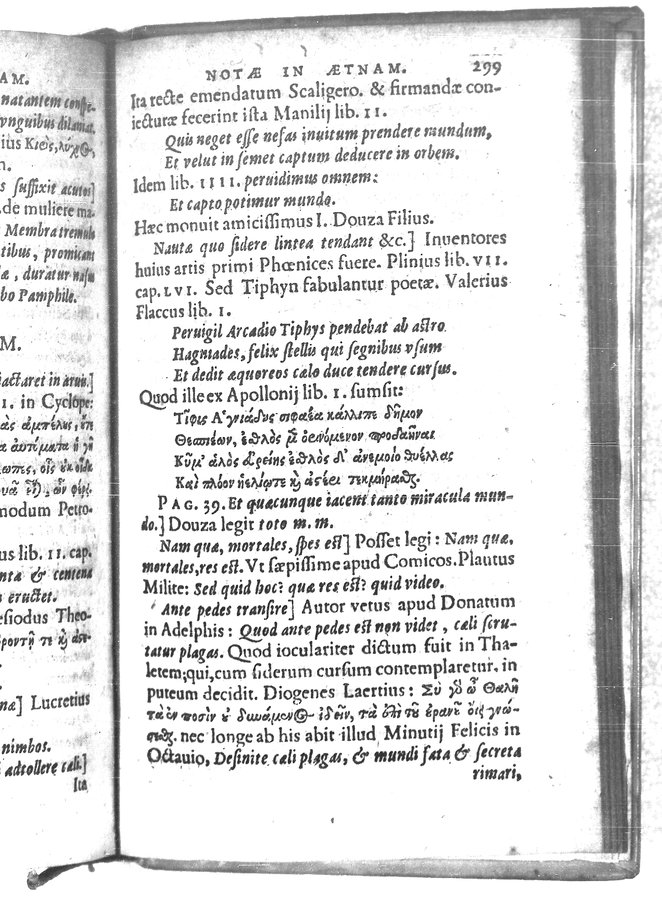 AM.
natantem
vnguibus
ius Κιος,
n.
s suffixit acutos]
de muliere ma-
Membra tremulo
tibus, promicant
æ, duratur nasus
bo Pamphile.
M.
iactaret in aruu.]
1. in Cyclope:
modum Petro-
us lib. 11. cap.
enta & centena
s eructet.
esiodus Theo-
næ] Lucretius
nimbos.
adtollere cæli.]
Ita
NOTÆ IN ÆTNAM. 299
Ita recte emendatum Scaligero. & firmandæ con-
iecturæ fecerint ista Manilij lib. 11.
Quis neget esse nefas inuitum prendere mundum,
Et velut in semet captum deducere in orbem.
Idem lib. 1111. peruidimus omnem:
Et capto potimur mundo.
Hæc monuit amicissimus I. Douza Filius.
Nautæ quo sidere lintea tendant &c.] Inuentores
huius artis primi Phœnices fuere. Plinius lib. VII.
cap. LVI. Sed Tiphyn fabulantur poetæ. Valerius
Flaccus lib. 1.
Peruigil Arcadio Tiphys pendebat ab astro
Hagniades, felix stellis qui segnibus vsum
Et dedit æquoreos cælo duce tendere cursus.
Quod ille ex Apollonij lib. 1. sumsit:
Τῖφις Ἁγνιάδης σιφαέα κάλλιπε δῆμον
Θεσπιέων, ἐσθλὸς μὲν ὀρινόμενον προδαῆναι
Κῦμ' ἁλὸς εὐρείης ἐσθλὸς δ' ἀνέμοιο θυέλλας
Καὶ πλόον ἠελίῳτε καὶ ἀστέρι τεκμήραθς.
PAG. 39. Et quæcunque iacent tanto miracula mun-
do.] Douza legit toto m. m.
Nam quæ, mortales, spes est] Posset legi: Nam quæ,
mortales, res est. Vt sæpissime apud Comicos. Plautus
Milite: Sed quid hoc? quæ res est? quid video.
Ante pedes transire] Autor vetus apud Donatum
in Adelphis: Quod ante pedes est non videt, cæli scru-
tatur plagas. Quod ioculariter dictum fuit in Tha-
letem; qui, cum siderum cursum contemplaretur, in
puteum decidit. Diogenes Laertius: Σὺ γὸ ὦ Θαλῆ
τὰ ἐν ποσὶν οὐ δυνάμενος ἰδεῖν, τὰ ἐπὶ τοῦ ἐρανοῦ οἴει γνώ-
σεσθς. nec longe ab his abit illud Minutij Felicis in
Octauio, Desinite cæli plagas, & mundi fata & secreta
rimari,